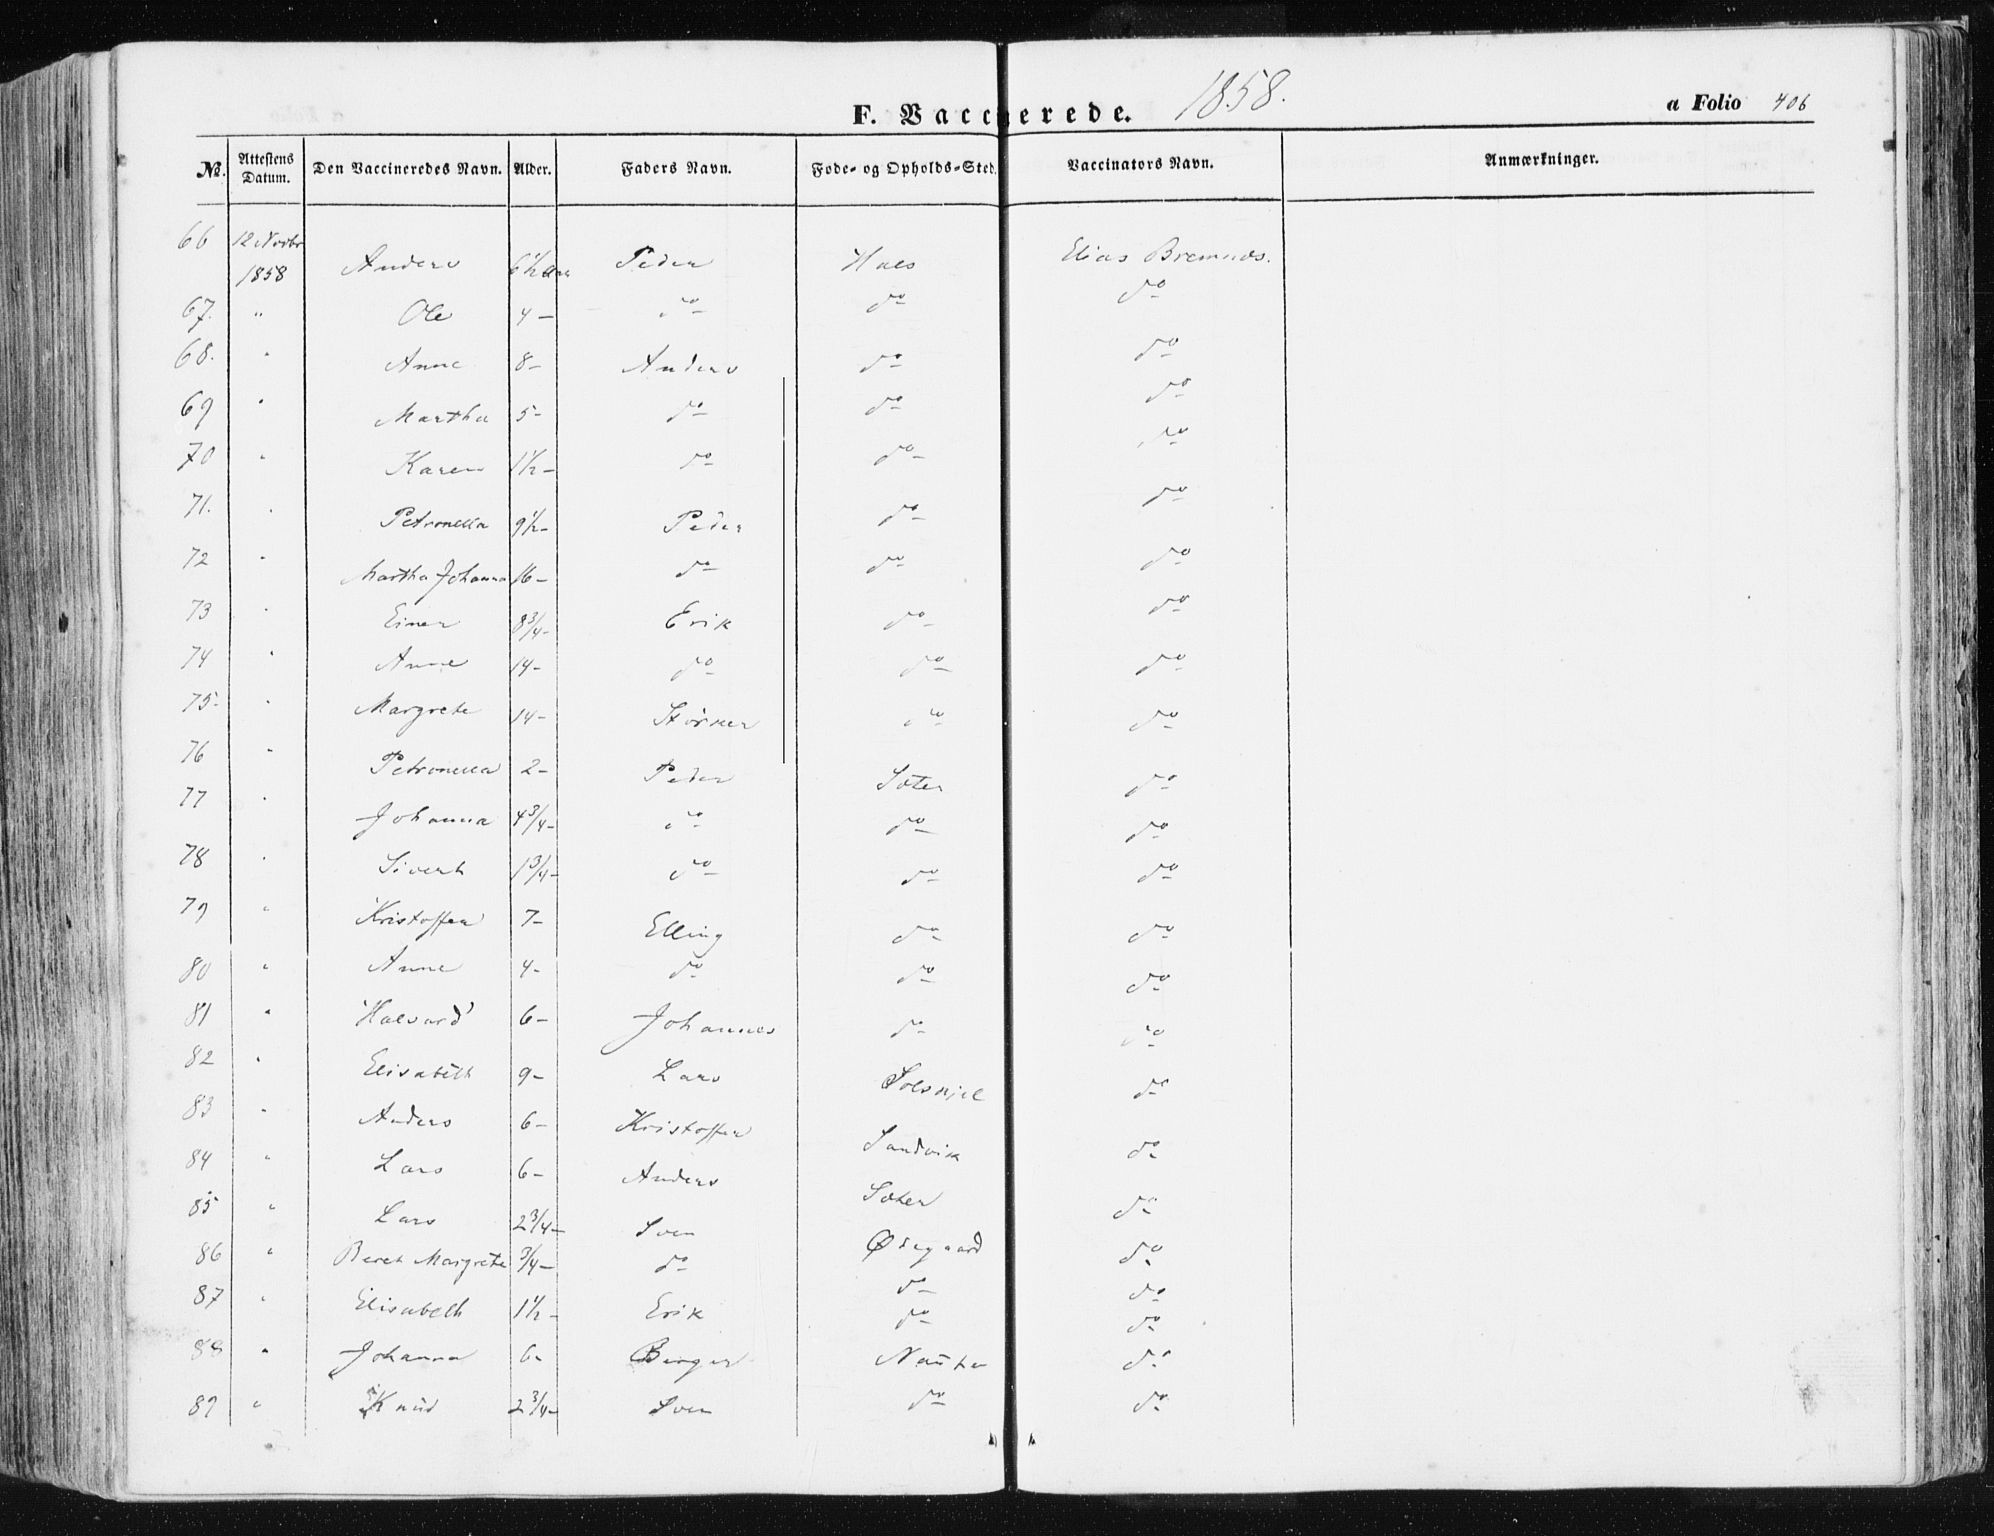 F. Vaccinerede. 1858. a Folio 406
No. Attestens Datum. Den Vaccineredes Navn. Alder. Faders Navn. Føde- og Opholds-Sted. Vaccinators Navn. Anmærkninger.
66 12 Novbr 1858 Anders 6½ Aar Peder Hals Elias Bremnes.
67. " Ole 4 – do do do
68. " Anne 8 – Anders do do
69 " Martha 5 – do do do
70 " Karen 1½ – do do do
71. " Petronella 9½ – Peder do do
72 " Martha Johanna 16 – do do do
73 " Einer 8¾ – Erik do do
74 " Anne 14 – do do do
75 " Margrete 14 – Störker do do
76 " Petronella 2 – Peder Sæter do
77 " Johanna 4¾ – do do do
78 " Sivert 1¾ – do do do
79 " Kristoffer 7 – Elling do do
80 " Anne 4 – do do do
81 " Halvard 6 – Johannes do do
82 " Elisabeth 9 – Lars Solskjel do
83 " Anders 6 – Kristoffer Sandvik do
84 " Lars 6 – Anders Sæter do
85 " Lars 2¾ – Sven Ødegaard do
86 " Beret Margrete ¾ – do do do
87 " Elisabeth 1½ – Erik do do
88 " Johanna 6 – Birger do
89 " Knud 2¾ – Sven do do